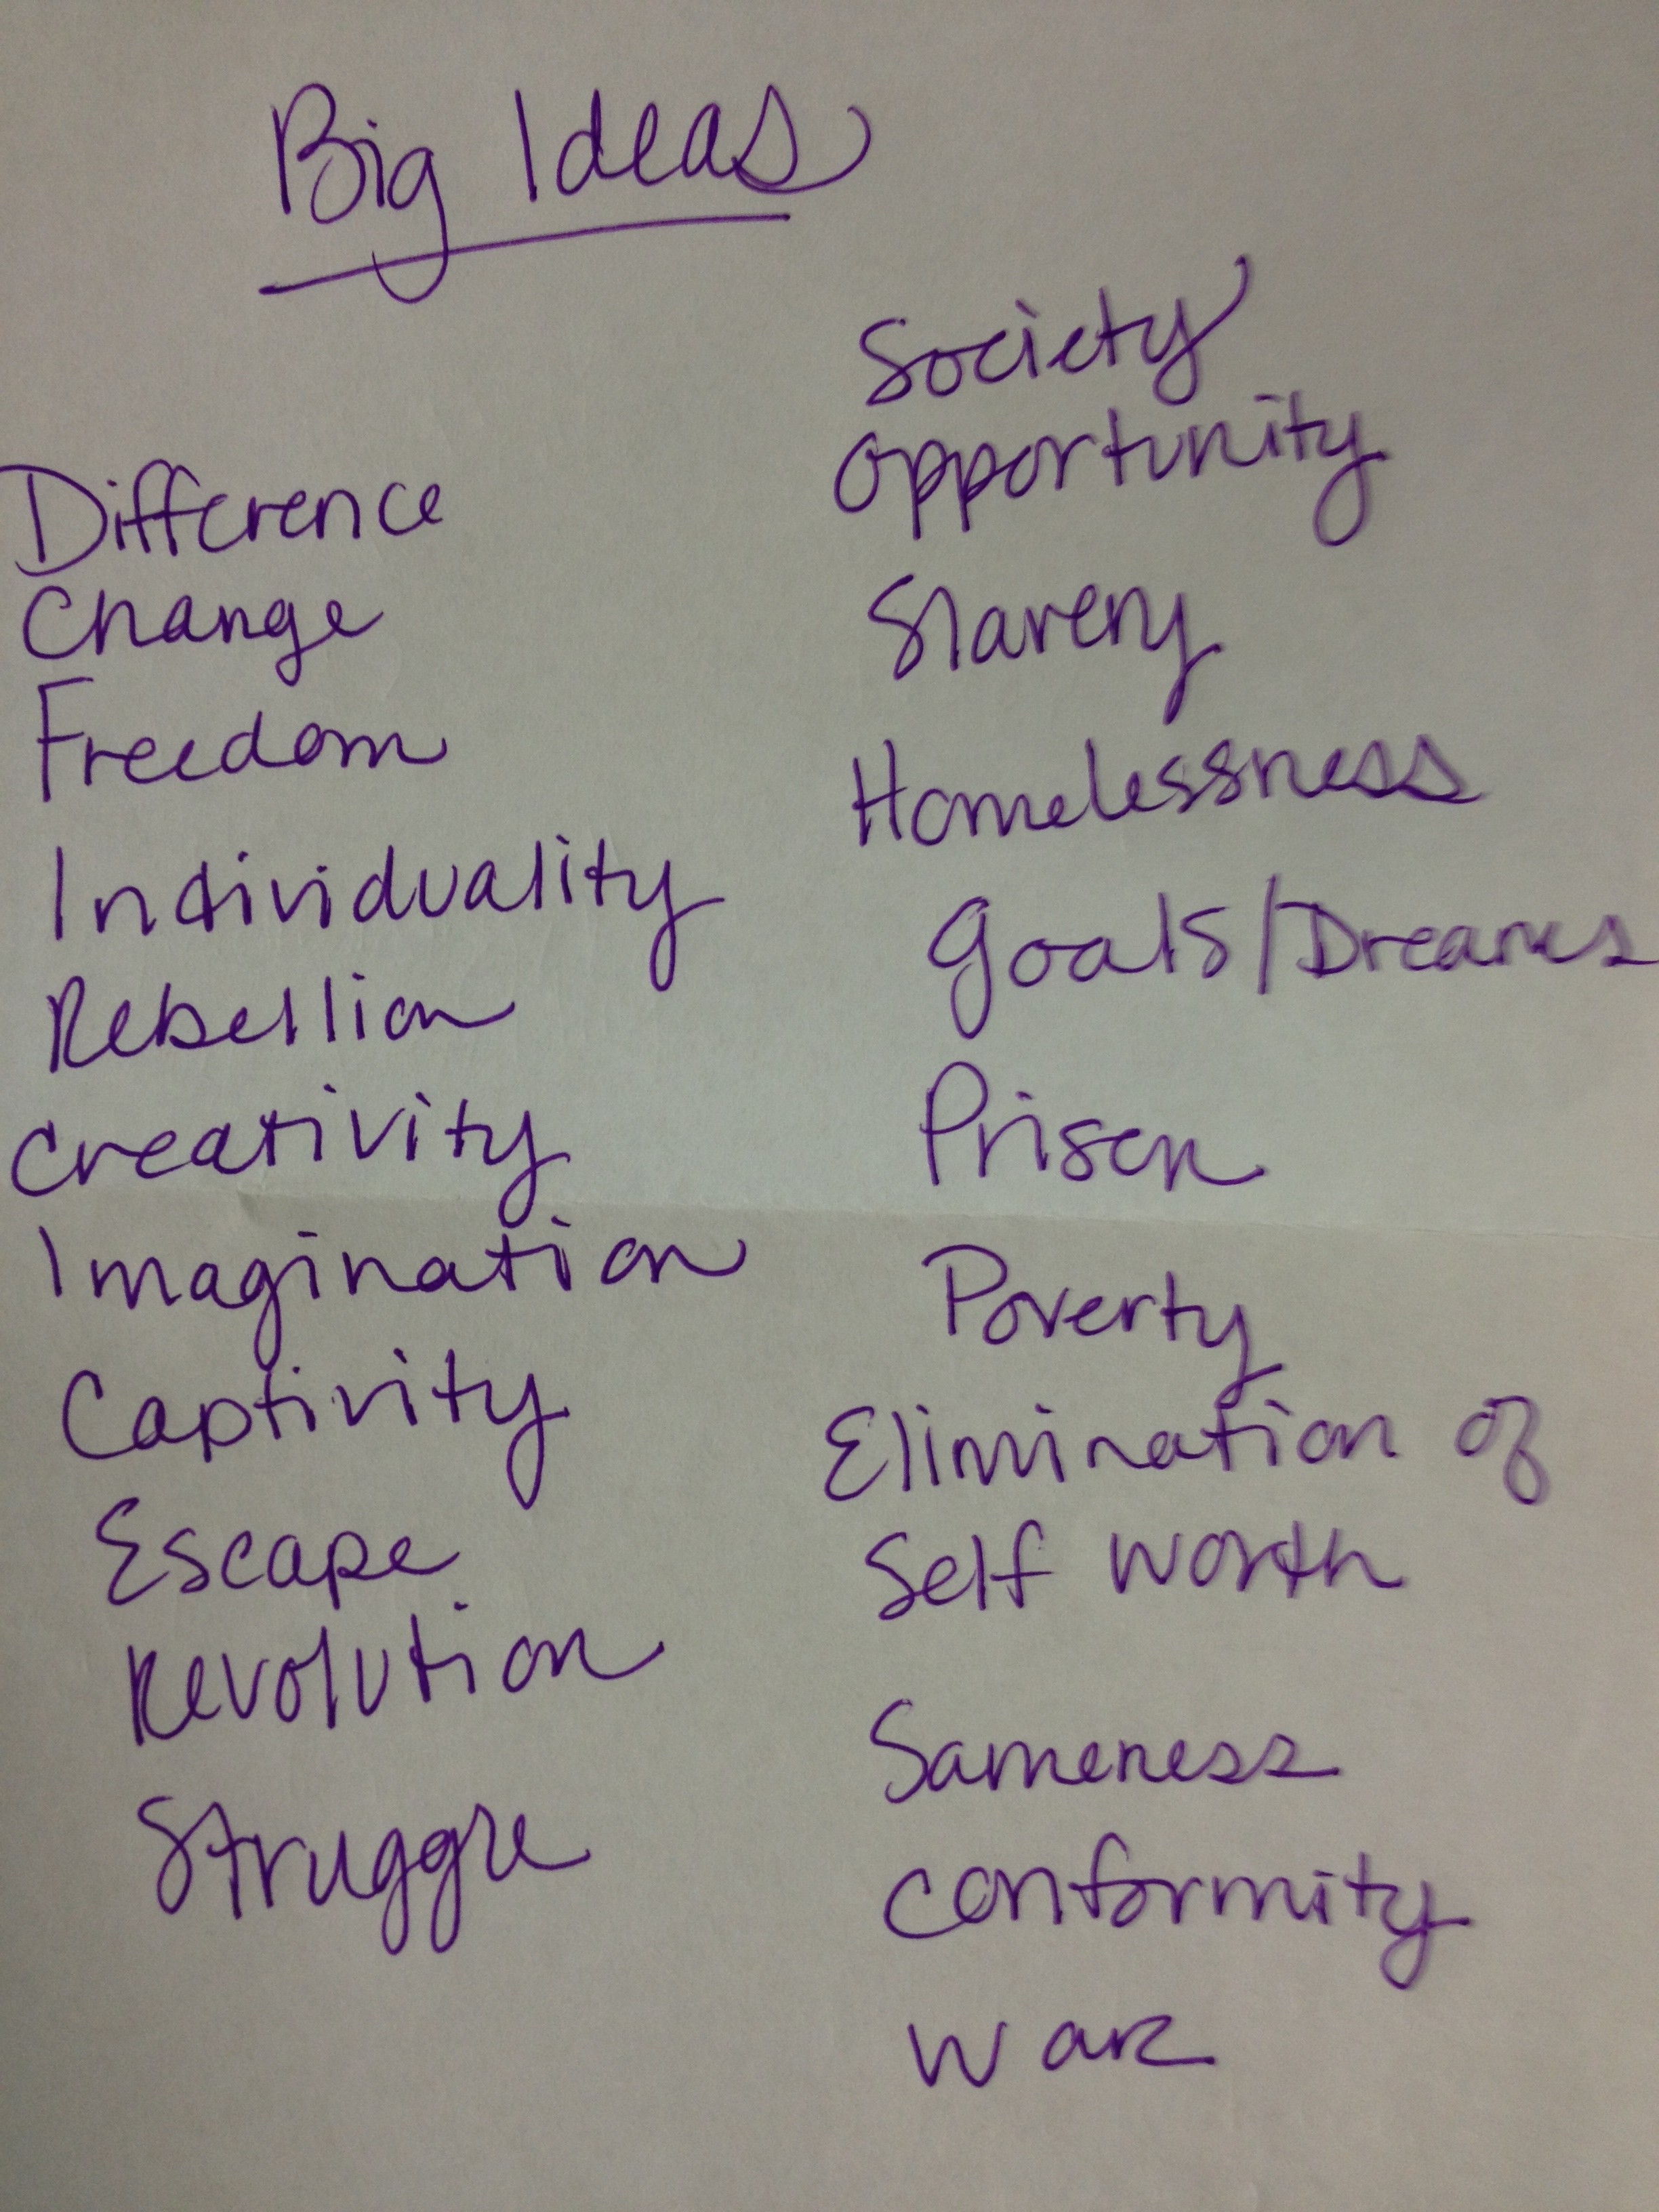 Big Ideas
Difference
Change
Freedom
Individuality
Rebellion
Creativity
Imagination
Captivity
Escape
Revolution
Struggle
Society
Opportunity
Slavery
Homelessness
Goals/Dreams
Prison
Poverty
Elimination of
Self worth
Sameness
Conformity
War